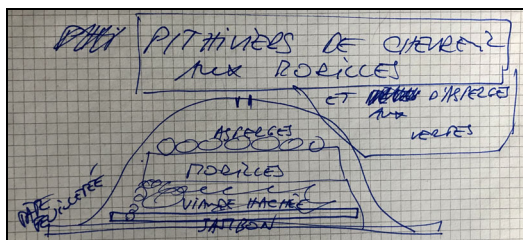 PITHIVIERS DE CHEVREUIL
AUX MORILLES
ET D'ASPERGES
VERTES
ASPERGES
MORILLES
VIANDE HACHÉE
JAMBON
PÂTE FEUILLETÉE